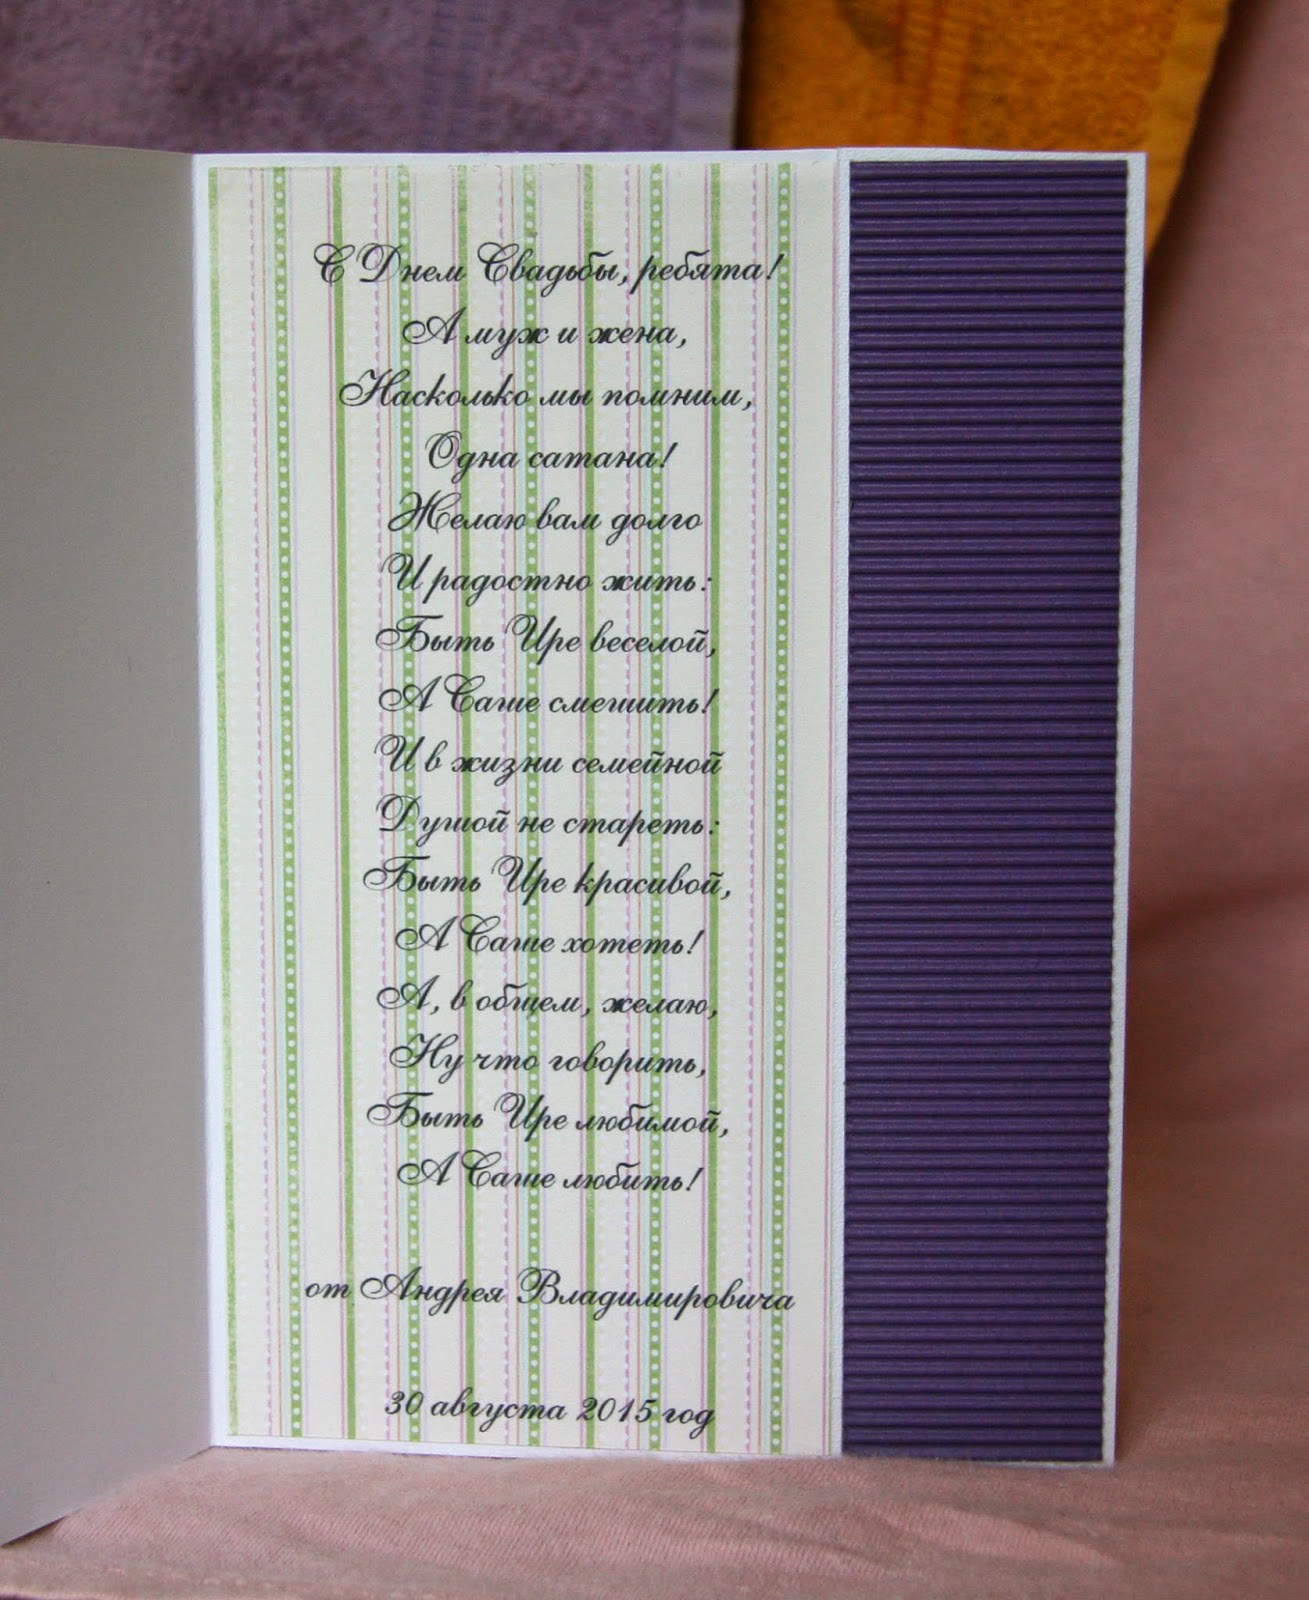 С Днем Свадьбы, ребята!
А муж и жена,
Насколько мы помним,
Одна сатана!
Желаю вам долго
И радостно жить:
Быть Ире веселой,
А Саше смешить!
И в жизни семейной
Душой не стареть:
Быть Ире красивой,
А Саше хотеть!
А, в общем, желаю,
Ну что говорить,
Быть Ире любимой,
А Саше любить!
от Андрея Владимировича
30 августа 2015 год